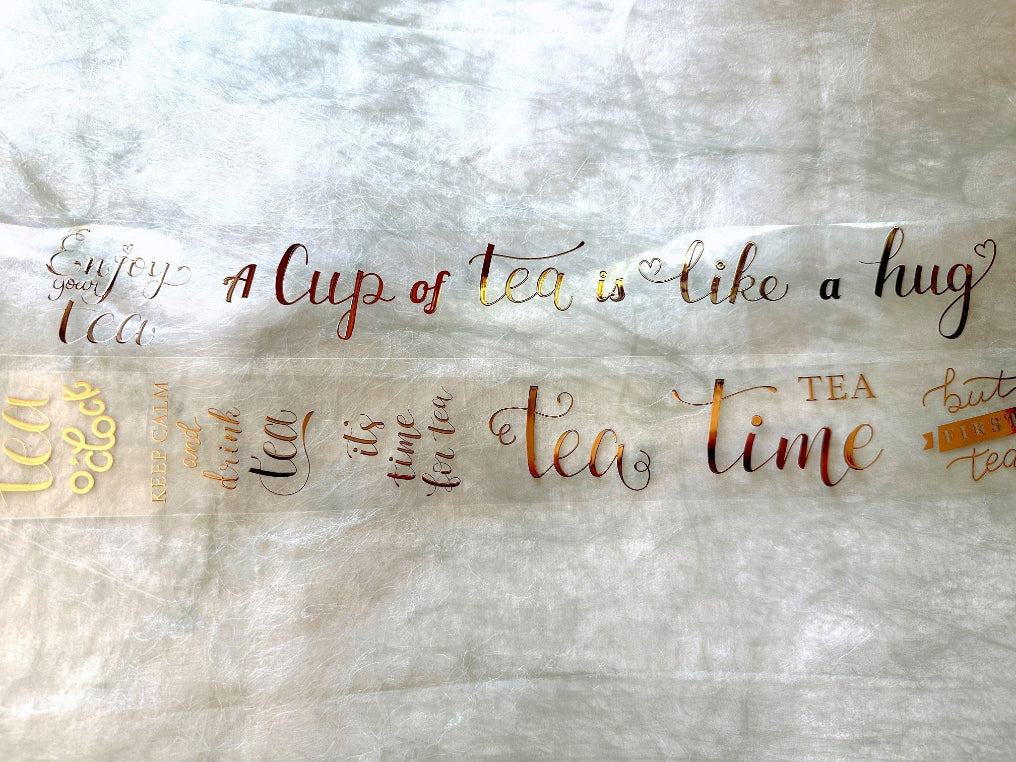 Enjoy
your
tea
A Cup of tea is like a hug
tea
o'clock
KEEP CALM
and
drink
tea
it's
time
for tea
tea
TEA
time
but
FIRST
tea